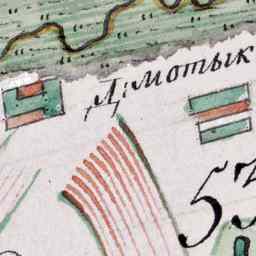 Д: мотык
53